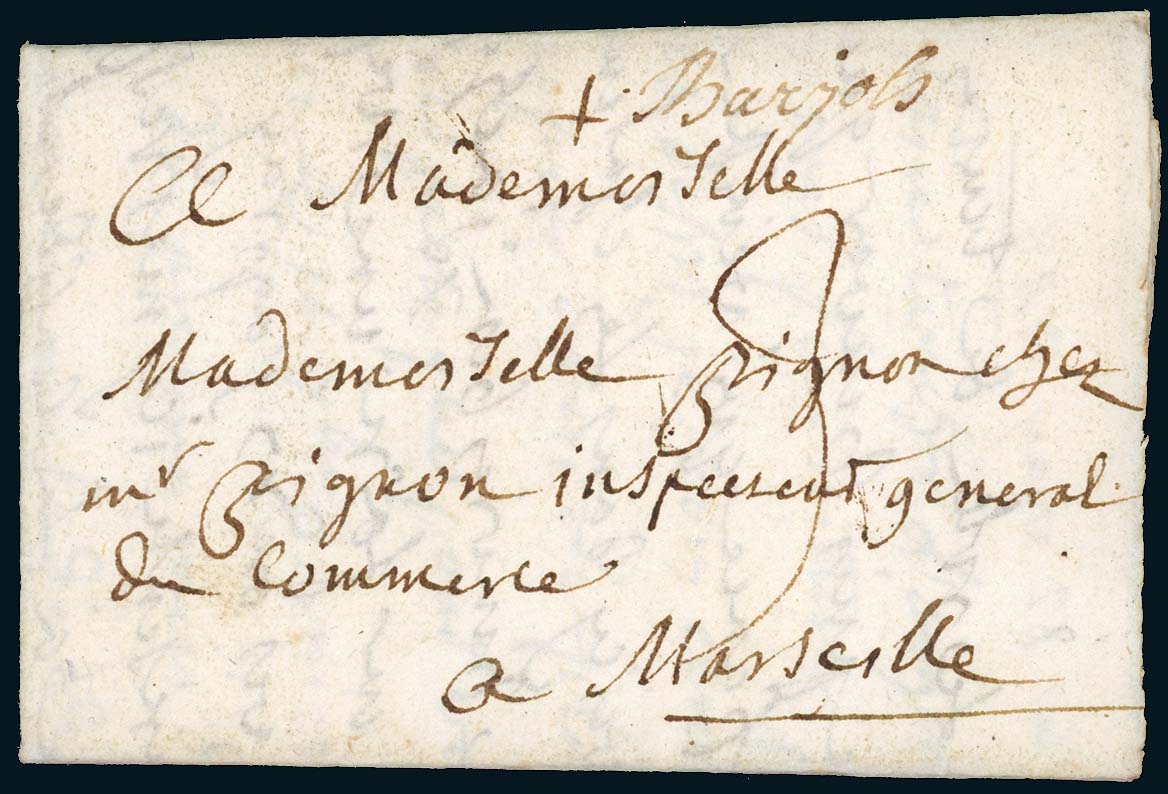 + Barjols
A Mademoiselle
Mademoiselle pignon chez
mr pignon inspecteur general
du Commerce
a Marseille